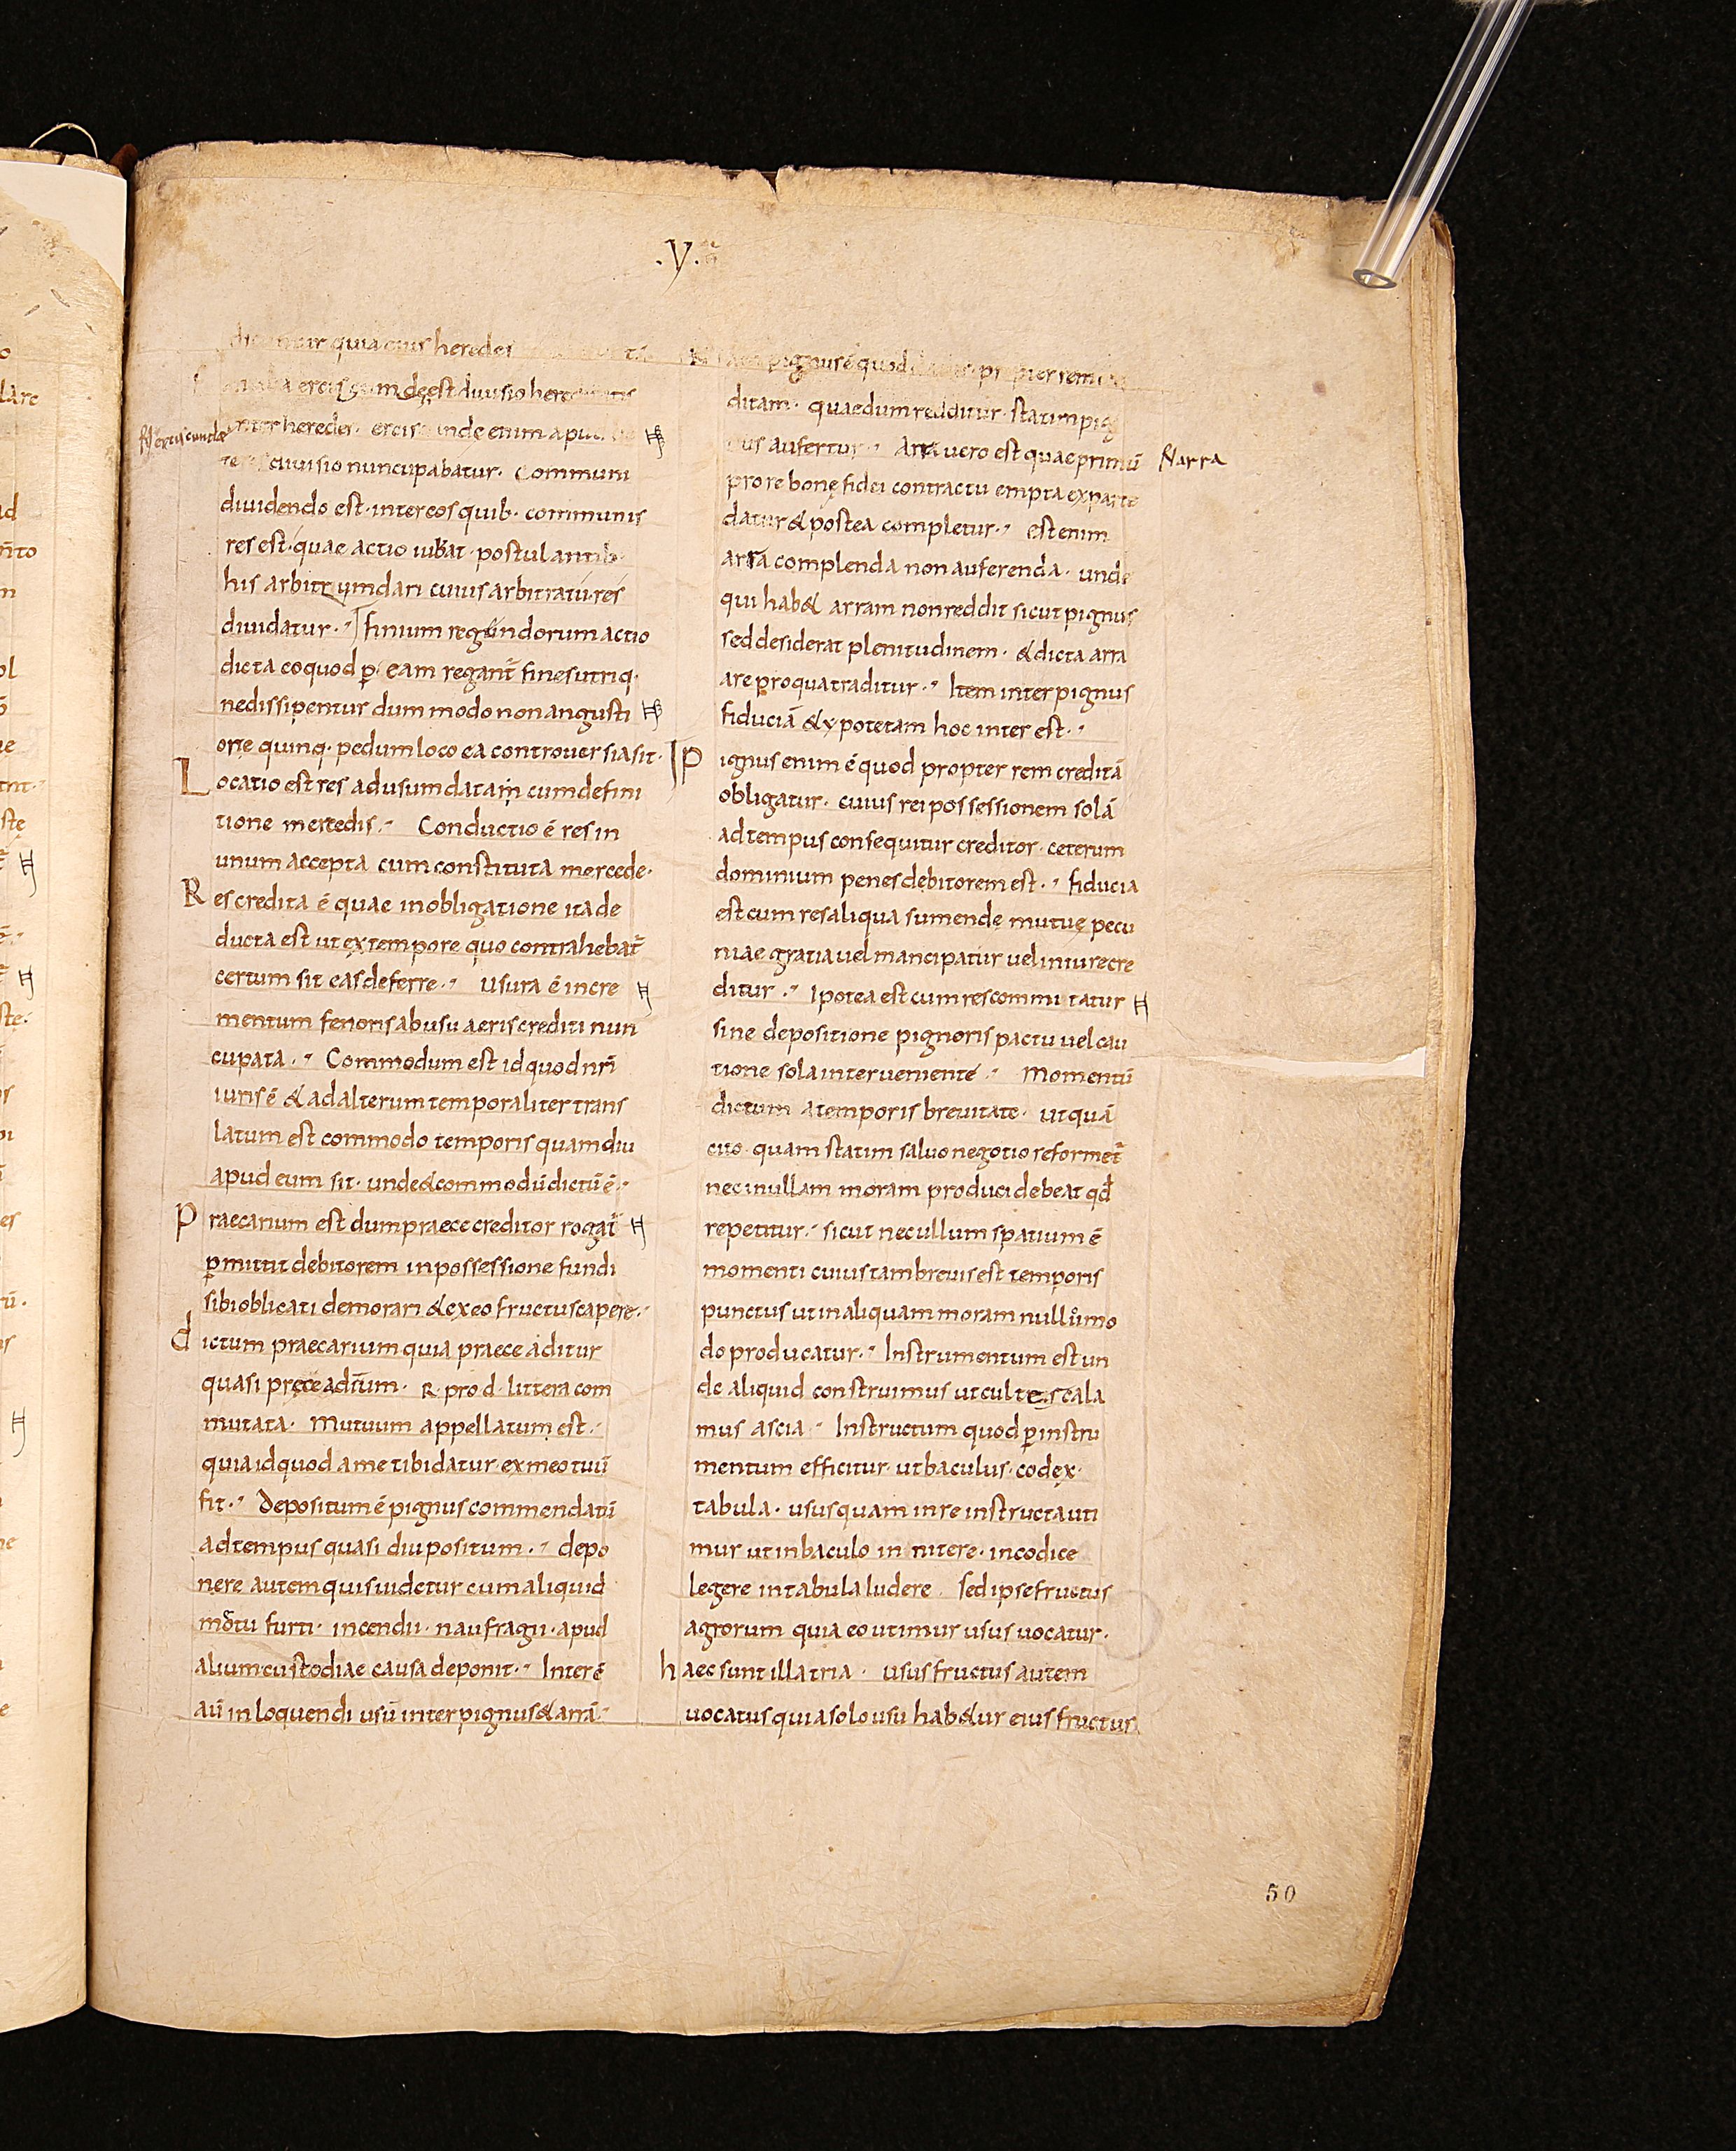 .V.
quia cuius heredes
est diuisio
heredes. enim
N erciscundae
diuisio nuncupabatur. Communi
diuidendo est. inter eos quib. communis
res est. quae actio iubat. postulantib.
his arbitrum dari cuius arbitratu. res
diuidatur. Finium regundorum actio
dicta eo quod p eam regant̄ fines utriq.
ne dissipentur dum modo non angusti
ore quinq. pedum loco ea controuersia sit.
Locatio est res ad usum datam cum defini
tione mercedis. Conductio ē res in
unum accepta cum constituta mercede.
Res credita ē quae in obligatione ita de
ducta est ut ex tempore quo contrahebat̄
certum sit eas deferre. Usura ē incre
mentum fenoris ab usu aeris crediti nun
cupata. Commodum est id quod nr̄i
iuris ē & ad alterum temporaliter trans
latum est commodo temporis quamdiu
apud eum sit. unde & commodū dictū ē.
Praecarium est dum praece creditor rogat̄
p̄mittit debitorem in possessione fundi
sibi oblicati demorari & ex eo fructus capere.
dictum praecarium quia praece aditur
quasi prece aditum. R. pro d. littera com
mutata. Mutuum appellatum est.
quia id quod a me tibi datur. ex meo tuū
fit. Depositum ē pignus commendatū
ad tempus quasi diu positum. depo
nere autem quis uidetur cum aliquid
metu furti. incendii. naufragii. apud
alium custodiae causa deponit. Inter ē
aū in loquendi usū inter pignus & arrā.
pignus ē quod propter rem
ditam. quae dum redditur. statim pig
nus aufertur. Arra uero est quae primū
N arra
pro re bonę fidei contractu empta ex parte
datur & postea completur. est enim
arra complenda non auferenda. unde
qui hab& arram non reddit sicut pignus
sed desiderat plenitudinem. & dicta arra
a re pro qua traditur. Item inter pignus
fiduciā & ypotetam hoc inter est.
Pignus enim ē quod propter rem creditā
obligatur. cuius rei possessionem solā
ad tempus consequitur creditor. ceterum
dominium penes debitorem est. fiducia
est cum res aliqua sumende mutuę pecu
niae gratia uel mancipatur uel in iure cre
ditur. Ipotea est cum res commitatur
sine depositione pignoris pactu uel cau
tione sola interueniente. Momentū
dictum a temporis breuitate. ut quā
cito. quam statim saluo negotio reformet̄
nec in ullam moram produci debeat qd̄
repetitur. sicut nec ullum spatium ē
momenti cuius tam breuis est temporis
punctus ut in aliquam moram nullo mo
do producatur. Instrumentum est un
de aliquid construimus ut culte. scala
mus ascia. Instructum quod p̄ instru
mentum efficitur. ut baculus. codex.
tabula. usus quam in re instructa uti
mur ut in baculo in nitere. in codice
legere in tabula ludere. sed ipse fructus
agrorum quia eo utimur usus uocatur.
haec sunt illa tria. ususfructus autem
uocatus quia solo usu hab&ur eius fructus
50